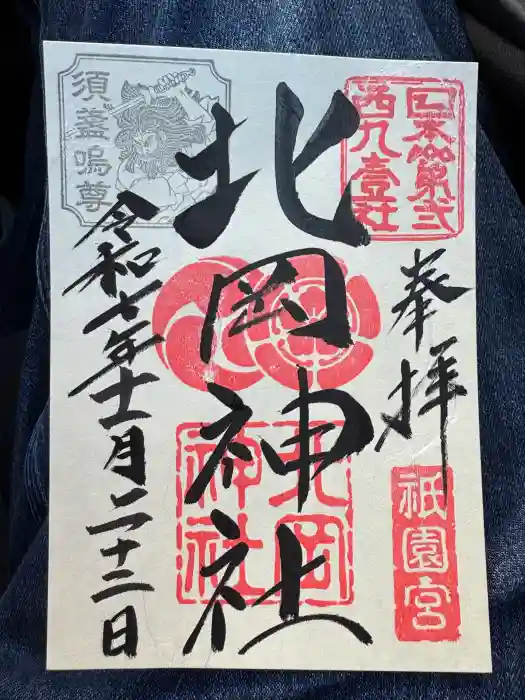 日本第弐
西乃壹社
奉拝
祇園宮
北岡神社
北岡
神社
須盞嗚尊
令和七年十一月二十二日